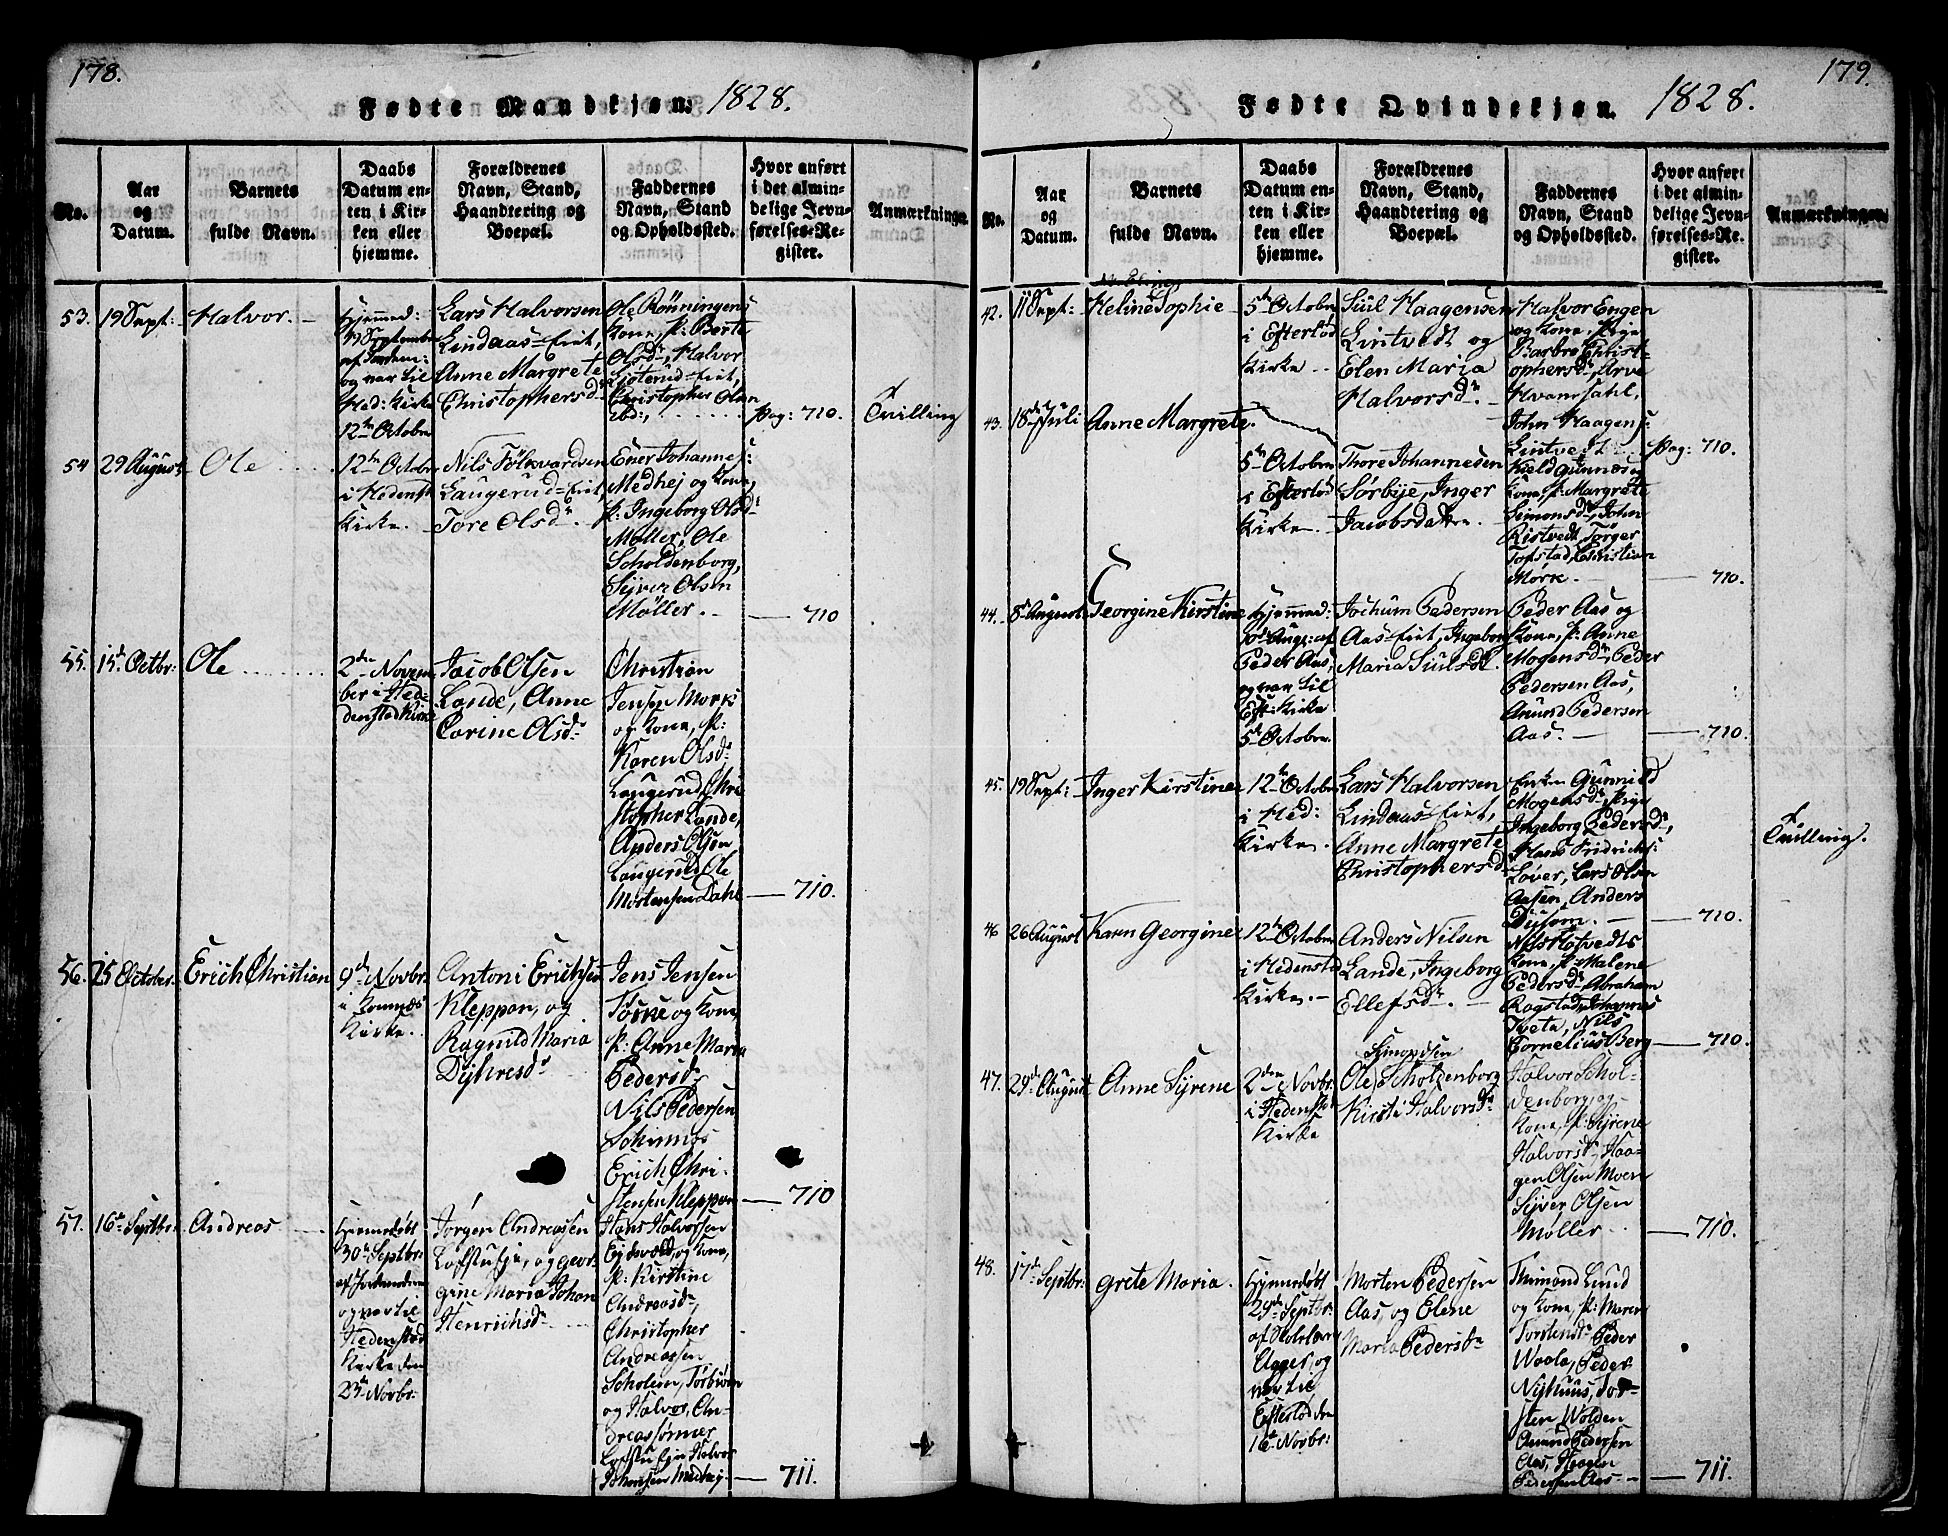 178.
Fødte Mandkjøn. 1828.
No.
Aar
og
Datum.
Barnets
fulde Navn.
Daabs
Datum en-
ten i Kir-
ken eller
hjemme.
Forældrenes
Navn, Stand,
Haandtering og
Boepæl.
Faddernes
Navn, Stand
og Opholdssted.
Hvor anført
i det almin-
delige Jevn-
førelses-Re-
gister.
Anmærkninger.
53.
19 Sept:
Halvor.
Hjemmed:
af
og var til
Hed: Kirke
12te Octobr
Lars Halvorsen
Lindaas-Eiet,
Anne Margrete
Christophersdr
Ole Rönningens
Kone, P: Berte
Olsdr, Halvor
Christopher Olsen
ibd:,
Pag: 710.
Tvilling
54
29 August
Ole
12te Octobr
i Hedenst
Kirke.
Nils
Laugerud-Eiet,
Tore Olsdr.
Ener Johannes:
Medhej og Kone,
P: Ingeborg Olsdr
Møller, Ole
Scholdenborg,
Syver Olsen
Møller.
710
55.
15de Octbr:
Ole
2den Novem
ber i Hed-
denstad Kirke
Jacob Olsen
Lande, Anne
Corine Olsdr
Christian
Jensen Mork
og Kone, P:
Karen Olsdr
Laugerud, Chri
stopher Lande,
Anders Olsen
Laugerud, Ole
Mortensen Dahl
710.
56.
25 October.
Erich Christian
9de Novbr.
i Komnæs
Kirke.
Antoni Erichsen
Kleppan, og
Ragnild Maria
Jens Jensen
Torne og Kone,
P: Anne Maria
Pedersdr
Nils Pedersen
Erich Chri-
stensen Kleppan
710
57.
16de Septbr.
Andreas
Hjemmedøbt
30te Septbr:
af
og var til
Hedenstad
Kirke den
23de Novbr:
Jørgen Andreassen
Lofstu Eje, og Geor-
gine Maria Johan
Henrichsdr
Hans Halvorsen
og Kone,
P: Kirstine
Andreasdr,
Christopher
Andreassen
og Halvor, An-
dreassønner
Lofstu Eje, Halvor
Johansen Medhej
711.
179.
Fødte Qvindekjøn. 1828.
No.
Aar
og
Datum.
Barnets
fulde Navn.
Daabs
Datum en-
ten i Kir-
ken eller
hjemme.
Forældrenes
Navn, Stand,
Haandtering og
Boepæl.
Faddernes
Navn, Stand
og Opholdssted.
Hvor anført
i det almin-
delige Jevn-
førelses-Re-
gister.
Anmærkninger.
42.
11 Sept:
Heline Sophie
5te October
i Efterlød
Kirke
Siül Haagensen
Lintvedt og
Elen Maria
Halvorsdr.
Halvor Engen
og Kone, Pige
Barbro Christ-
ophersdr, Arve
John Haagens:
Lintvedt
Pag: 710.
43.
18de Juli
Anne Margrete.
5te October
i Efterlød
Kirke.
Thore Johannesen
Sørbye, Inger
Jacobsdatter.
Kield Gunnæs og
Kone, P: Margrete
Simonsdr, John
Kistvedt, Torger
Tofstad, Christian
Mørk.
710.
44.
8de August
Georgine Kirstine
Hjemmed:
Peder Aas,
og var til
Eft: Kirke
5te October.
Jochum Pedersen
Aas-Eiet, Ingeborg
Maria Siulsdr.
Peder Aas og
Kone, P: Anne
Mogensdr, Peder
Pedersen Aas,
Amund Pedersen
Aas.
710.
45.
19 Sept:
Inger Kirstine
12te October
i Hed:
Kirke.
Lars Halvorsen
Lindaas-Eiet,
Anne Margrete
Christophersdr
Enken Gunnild
Mogensdr, Pige
Ingeborg Pedersdr,
Hans Fridrichs:
Lover, Lars Olsen
Aasen, Anders
710.
Tvilling.
46
26 August
Karen Georgine
12te October
i Hedenstad
Kirke.
Anders Nilsen
Lande, Ingeborg
Ellefsdr.
Nils Hotvedts
Kone, P: Malene
Pedersdr, Abraham
Rogstad, Johannes
Tveta, Nils
Cornelius Berg
710.
47.
29de August
Anne Syrene
2den Novbr:
i Hedenstad
Kirke
Simonsen
Ole Scholdenborg
Kirsti Halvorsdr
Halvor Schol-
denborg, og
Kone, P: Syrene
Halvorsdr, Haa-
gen Olsen Moen
Syver Olsen
Møller
710.
48.
17de Septbr:
Grete Maria.
Hjemmedøbt
29de Septbr:
Aggers, og
var til
Efterlød den
16de Novbr:
Morten Pedersen
Aas, og Elene
Maria Pedersdr
Thimand Lund
og Kone, P: Maren
Torstensdr, Peder
Waala, Peder
Nyhuus, Tor-
sten Wolden
Amund Pedersen
Aas, Haagen
Pedersen Aas.
711.